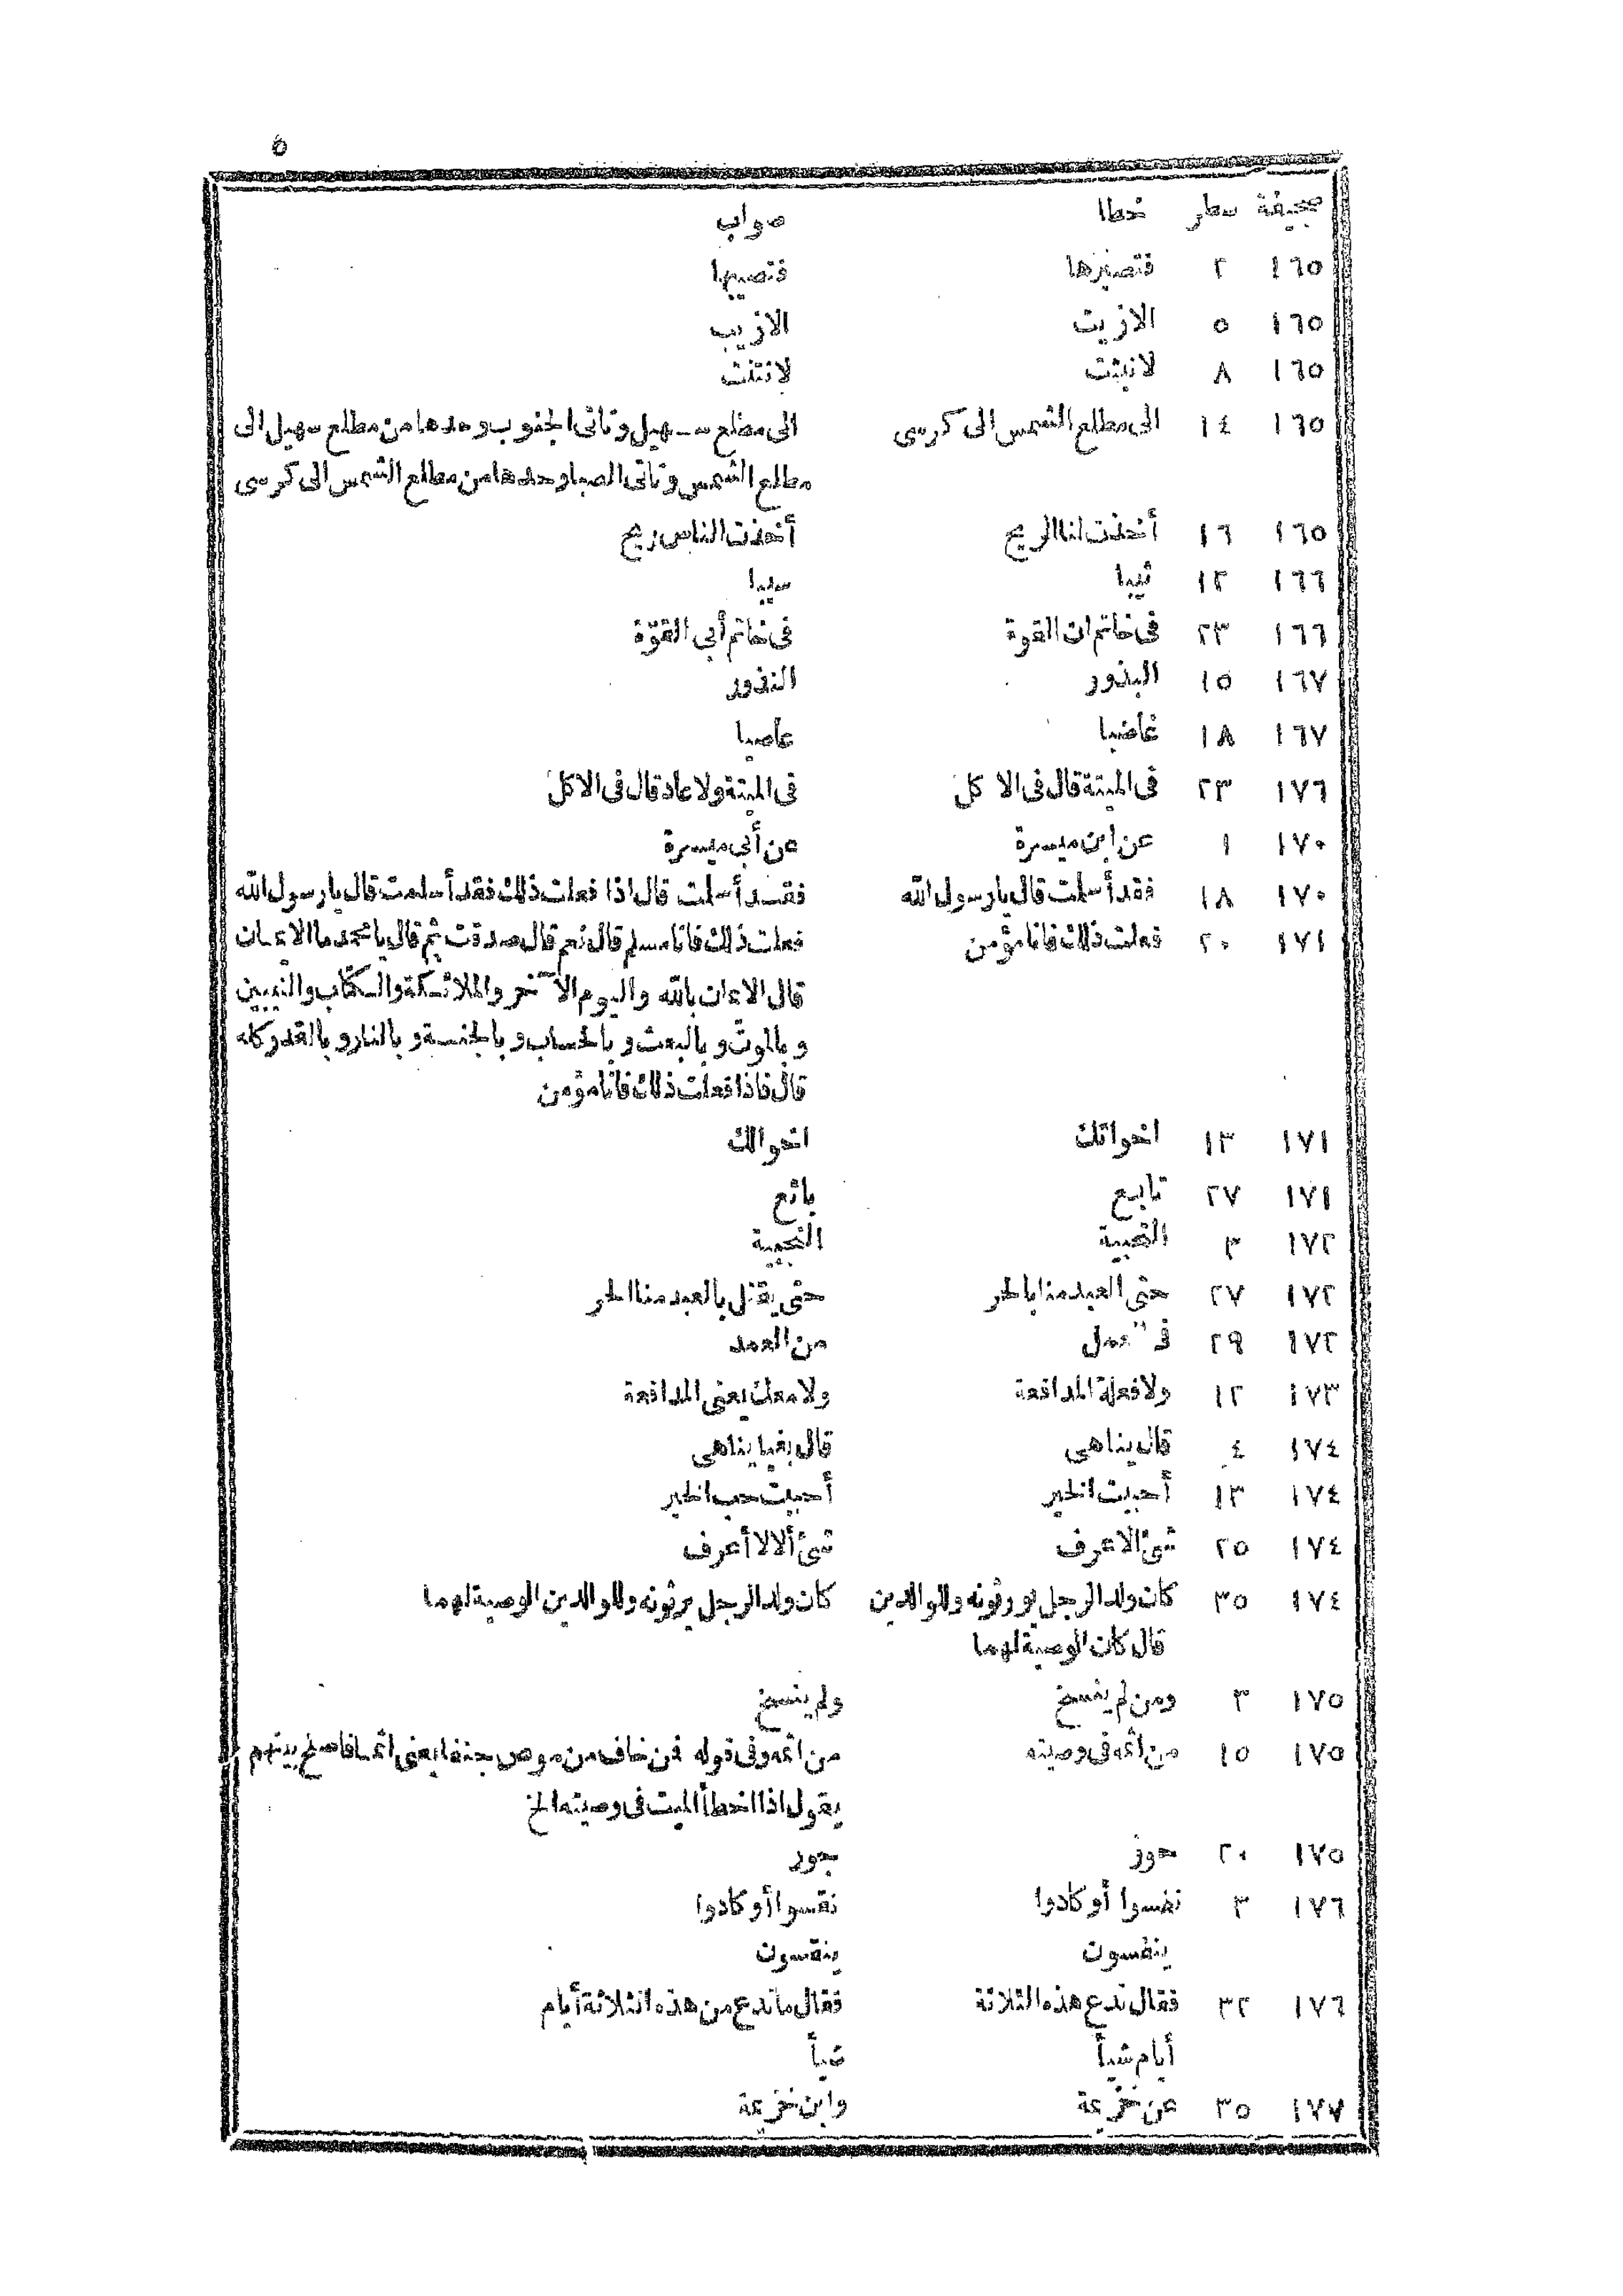 ٥
صحيفة سطر خطا صواب
١٦٥ ٢ فتصيرها فتصيبها
١٦٥ ٥ الازيت الازيب
١٦٥ ٨ لانبثت لانتنت
١٦٥ ١٤ الى مطلع الشمس الى كرسى الى مطلع سهيل وتاتى الجنوب وحدها من مطلع سهيل الى
مطلع الشمس وتاتى الصبا وحدها من مطلع الشمس الى كرسى
١٦٥ ١٦ أخذت لنا الريح أخذت الناس ريح
١٦٦ ١٢ ثيبا سيبا
١٦٦ ٢٣ فى خاتم ان القوة فى خاتم أبي القوّة
١٦٧ ١٥ البذور النذور
١٦٧ ١٨ غاضبا عاصيا
١٧٦ ٢٣ فى الميتة قال فى الا كل فى الميتة ولا عاد قال فى الاكل
١٧٠ ١ عن ابن ميسرة عن أبى ميسرة
١٧٠ ١٨ فقد أسلمت قال يا رسول الله فقد أسلمت قال اذا فعلت ذلك فقد أسلمت قال يا رسول الله
١٧١ ٢٠ فعلت ذلك فانا مؤمن فعلت ذلك فانا مسلم قال نعم قال صدقت ثم قال يا محمد ما الايمان
قال الايمان بالله واليوم الآخر والملائكة والكتاب والنبيين
وبالموت وبالبعث وبالحساب وبالجنة وبالنار وبالقدر كله
قال فاذا فعلت ذلك فانا مؤمن
١٧١ ١٣ اخواتك اخوالك
١٧١ ٢٧ تابع بائع
١٧٢ ٣ التجيبة النجيبة
١٧٢ ٢٧ حتى العبد منا بالحر حتى يقتل بالعبد منا الحر
١٧٢ ٢٩ عمل من العمد
١٧٣ ١٢ ولا فعلة المدافعة ولا معك يعنى المدافعة
١٧٤ ٤ قال يناهى قال بغيا يناهى
١٧٤ ١٣ أحببت الخير أحببت حب الخير
١٧٤ ٢٥ شئ الاعرف شئ ألا لا أعرف
١٧٤ ٣٥ كان ولد الرجل يورثونه وللوالدين كان ولد الرجل يرثونه وللوالدين الوصية لهما
قال كان الوصية لهما
١٧٥ ٣ ومن لم ينسخ ولم ينسخ
١٧٥ ١٥ من اثمه فى وصيته من اثمه وفى قوله فمن خاف من موص جنفا يعنى اثما فاصلح بينهم
يقول اذا اخطأ الميت فى وصيته الخ
١٧٥ ٢٠ حوز جور
١٧٦ ٣ نفسوا أو كادوا نقسوا أو كادوا
ينفسون ينقسون
١٧٦ ٣٢ فقال ندع هذه الثلاثة فقال ما ندع من هذه الثلاثة أيام
أيام شيأ شيأ
١٧٧ ٣٥ عن خزيمة وابن خزيمة